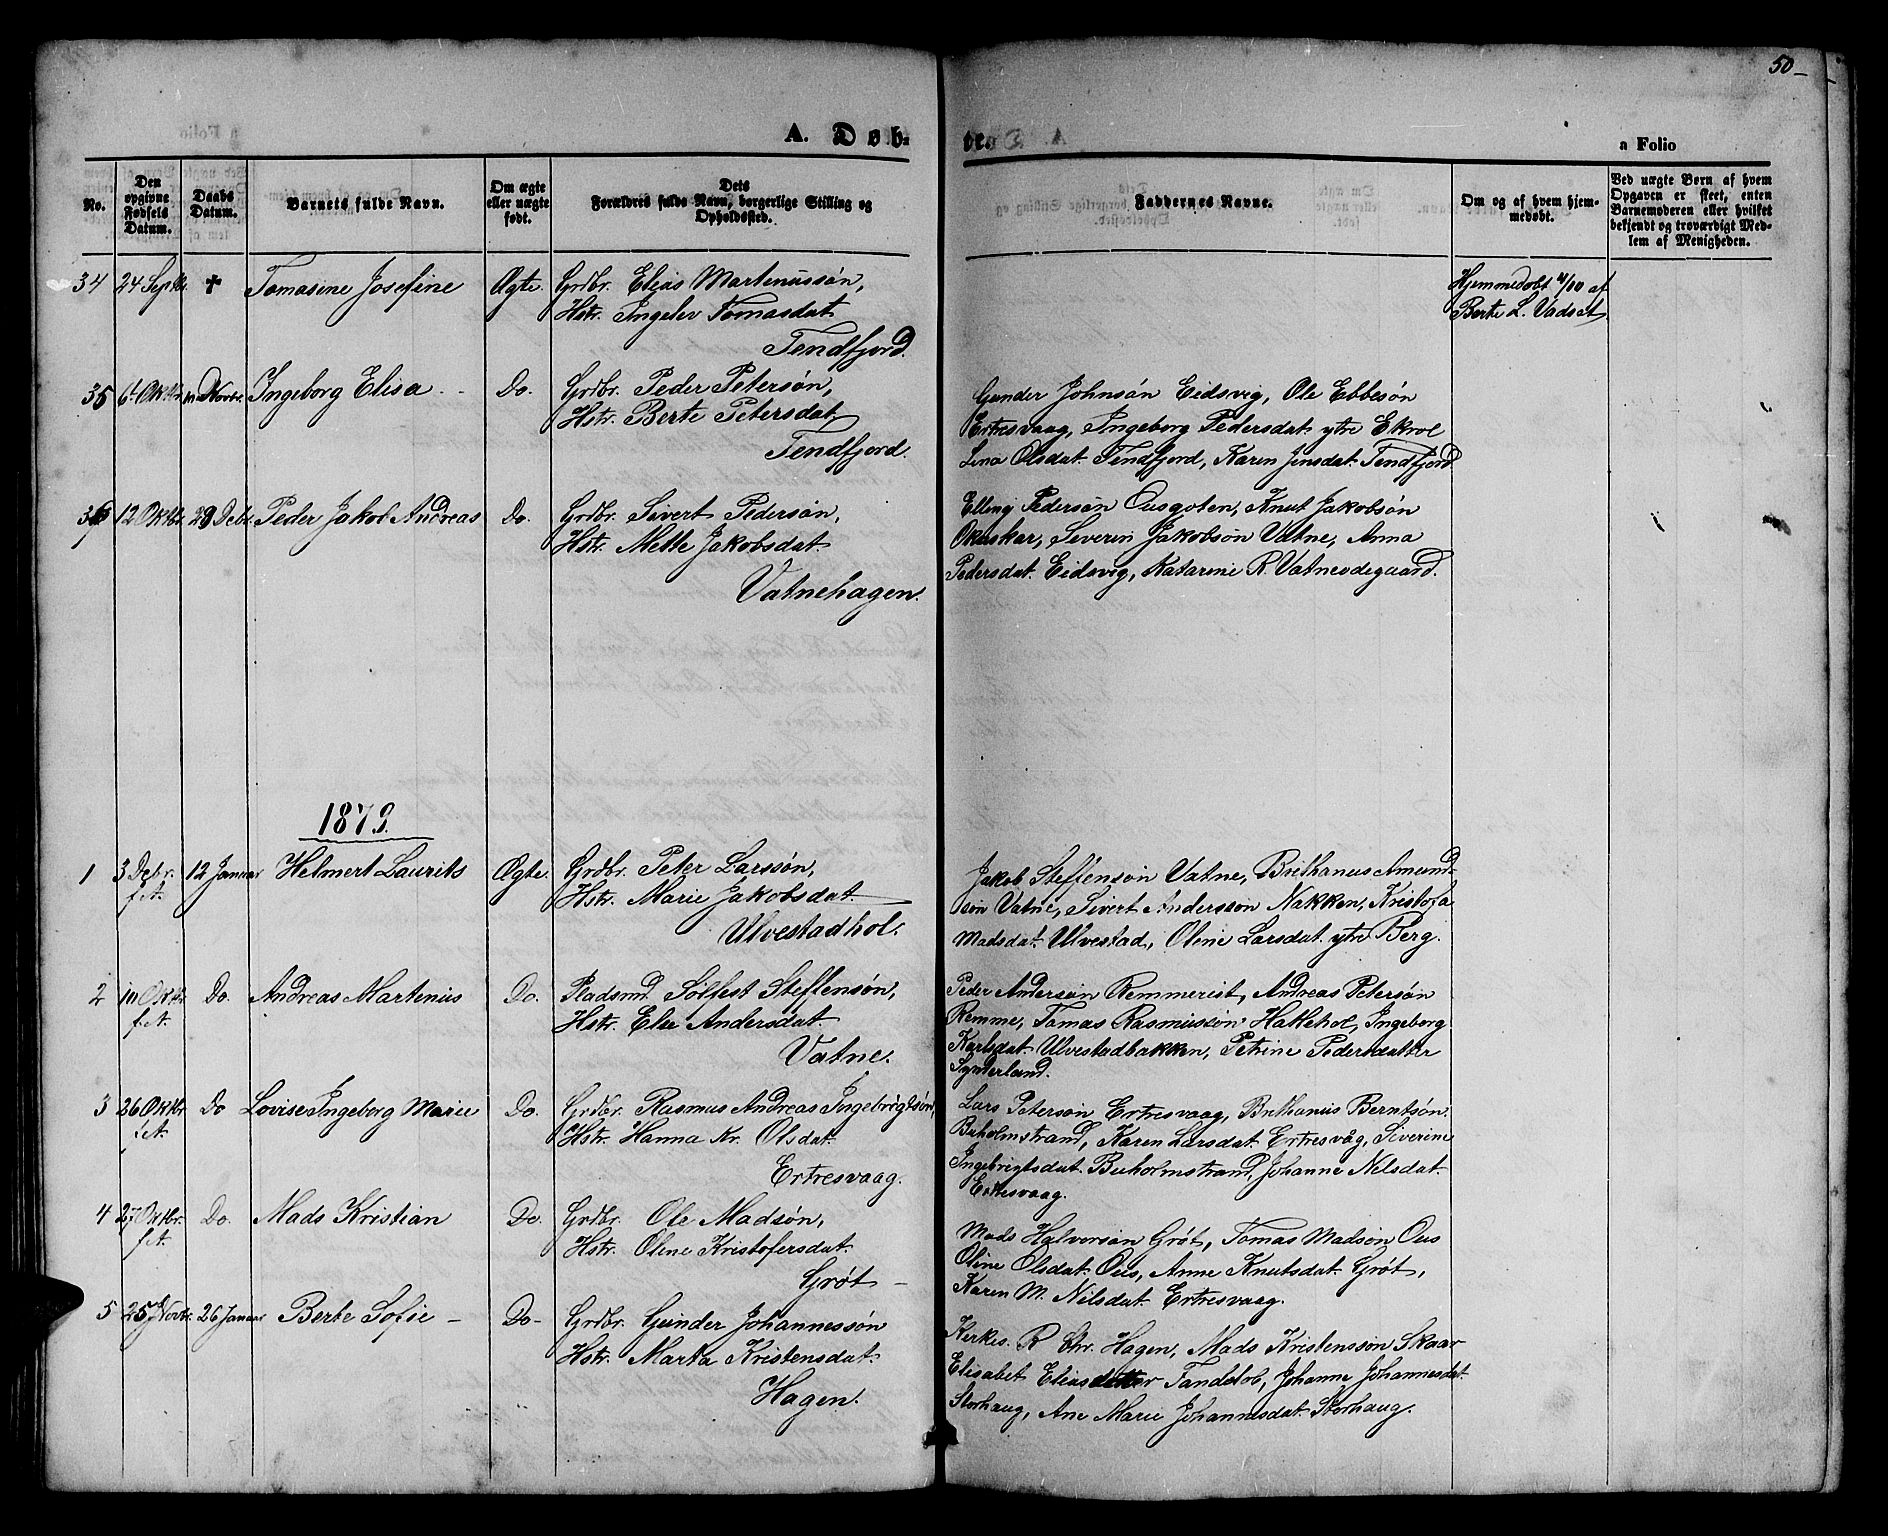 50
A. Døb-
te.
a Folio
No.
Den opgivne Fødsels Datum.
Daabs Datum.
Barnets fulde Navn.
Om ægte eller uægte født.
Dets Forældres fulde Navn, borgerlige Stilling og Opholdssted.
Faddernes Navne.
Om og af hvem hjemmedøbt.
Ved uægte Børn, af hvem Opgaven er skeet, enten Barnemoderen eller hvilket bekjendt og troværdigt Medlem af Menigheden.
34 24 Septbr. † Tomasine Josefine Ægte. Grdbr. Elias Martinussøn,
Hstr. Ingelev Tomasdat.
Tendfjord.
Hjemmedøbt 4/10 af
Berte L. Vadset.
35 6 Oktbr. 10 Novbr. Ingeborg Elisa Do. Grdbr. Peder Petersøn,
Hstr. Berte Petersdat.
Tendfjord.
Gunder Johnsøn Eidsvig, Ole Ebbesøn
Ertresvaag, Ingeborg Pedersdat. ytre Ekrol
Lina Olsdat. Tendfjord, Karen Jensdat. Tendfjord
36 12 Oktbr. 29 Debr. Peder Jakob Andreas Do. Grdbr. Sivert Pedersøn,
Hstr. Mette Jakobsdat.
Vatnehagen.
Elling Pedersøn Ousgoten, Knut Jakobsøn
Okuskar, Severin Jakobsøn Vatne, Anna
Pedersdat. Eidsvig, Katarine R. Vatneødegaard.
1879.
1 3 Debr. f.A. 12 Januar Helmert Laurits Ægte. Grdbr. Peter Larssøn,
Hstr. Marie Jakobsdat.
Ulvestadhol.
Jakob Steffensøn Vatne, Brithanus Amund-
søn Vatne, Sivert Anderssøn Nakken, Kristofa
Madsdat. Ulvestad, Oline Larsdat. ytre Berg.
2 10 Oktbr. f.A. Do. Andreas Martinus Do. Pladsmd. Sølfest Steffensøn,
Hstr. Elee Andersdat.
Vatne.
Peder Andersøn Remmerist, Andreas Petersøn
Remme, Tomas Rasmussøn Hattehol, Ingeborg
Karlsdat. Ulvestadbakken, Petrine Pedersdatter
Synderland.
3 26 Oktbr. f.A. Do Lovise Ingeborg Marie Do. Grdbr. Rasmus Andreas Ingebrigtsøn,
Hstr. Hanna Kr. Olsdat.
Ertresvaag.
Lars Petersøn Ertresvaag, Brithanus Berntsøn
Buholmstrand, Karen Larsdat. Ertresvåg, Siverine
Ingebrigtsdat. Buholmstrand, Johanne Nilsdat.
Ertresvaag.
4 27 Oktbr. f.A. Do. Mads Kristian Do. Grdbr. Ole Madsøn,
Hstr. Oline Kristofersdat.
Grøt
Mads Halvorsøn Grøt, Tomas Madsøn Ous
Oline Olsdat. Ous, Anne Knutsdat. Grøt,
Karen M. Nilsdat. Ertresvaag.
5 25 Novbr. 26 Januar Berte Sofie Do Grdbr. Gunder Johannessøn
Hstr. Marta Kristensdat.
Hagen.
Kirkes. R Chr. Hagen, Mads Kristenssøn Skaar
Elisabet Eliasdatter Tandelob, Johanne Johannesdat.
Storhaug, Ane Marie Johannesdat. Storhaug.